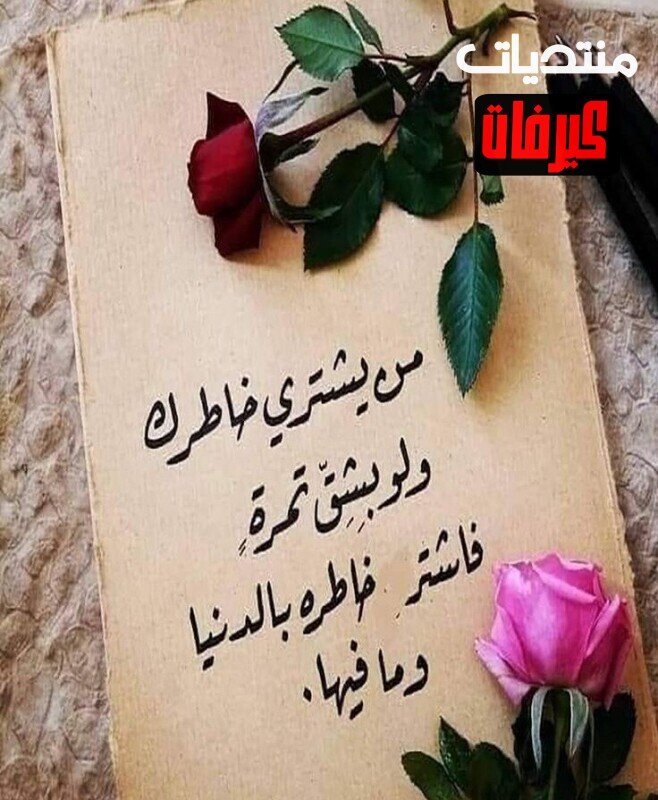 منتديات
كيرفات
من يشتري خاطرك
ولو بِشِقّ تمرةٍ
فاشترِ خاطره بالدنيا
وما فيها.